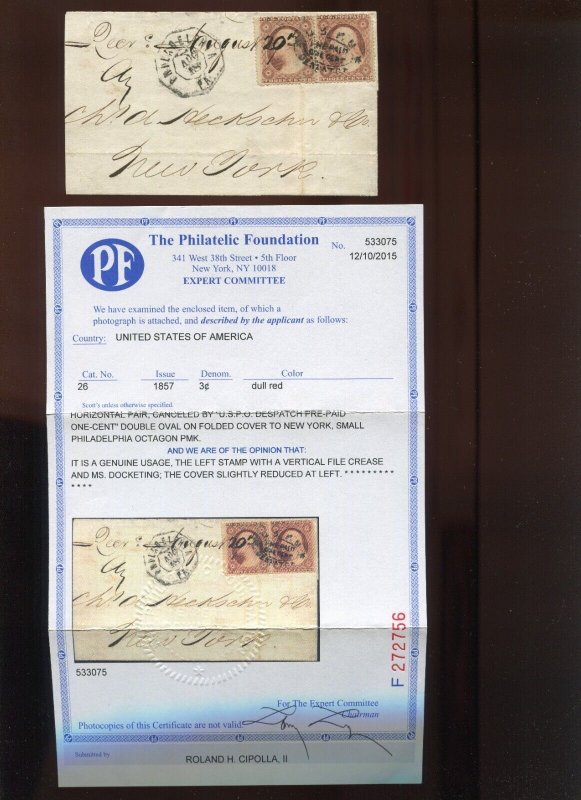 Recd August 20th
PHILADELPHIA
AUG
PA
U.S.P.O.
PRE-PAID
ONE CENT
DESPATCH
THREE CENTS
THREE CENTS
Chs A Heckscher & Co.
New York.
PF
The Philatelic Foundation
341 West 38th Street • 5th Floor
New York, NY 10018
EXPERT COMMITTEE
No. 533075
12/10/2015
We have examined the enclosed item, of which a
photograph is attached, and described by the applicant as follows:
Country: UNITED STATES OF AMERICA
Cat. No. Issue Denom. Color
26 1857 3¢ dull red
Scott's unless otherwise specified.
HORIZONTAL PAIR, CANCELED BY "U.S.P.O. DESPATCH PRE-PAID
ONE-CENT" DOUBLE OVAL ON FOLDED COVER TO NEW YORK, SMALL
PHILADELPHIA OCTAGON PMK.
AND WE ARE OF THE OPINION THAT:
IT IS A GENUINE USAGE, THE LEFT STAMP WITH A VERTICAL FILE CREASE
AND MS. DOCKETING; THE COVER SLIGHTLY REDUCED AT LEFT. *********
****
Recd August 20th
Chs A Heckscher & Co.
New York.
533075
F 272756
For The Expert Committee
Chairman
Photocopies of this Certificate are not valid
Submitted by
ROLAND H. CIPOLLA, II